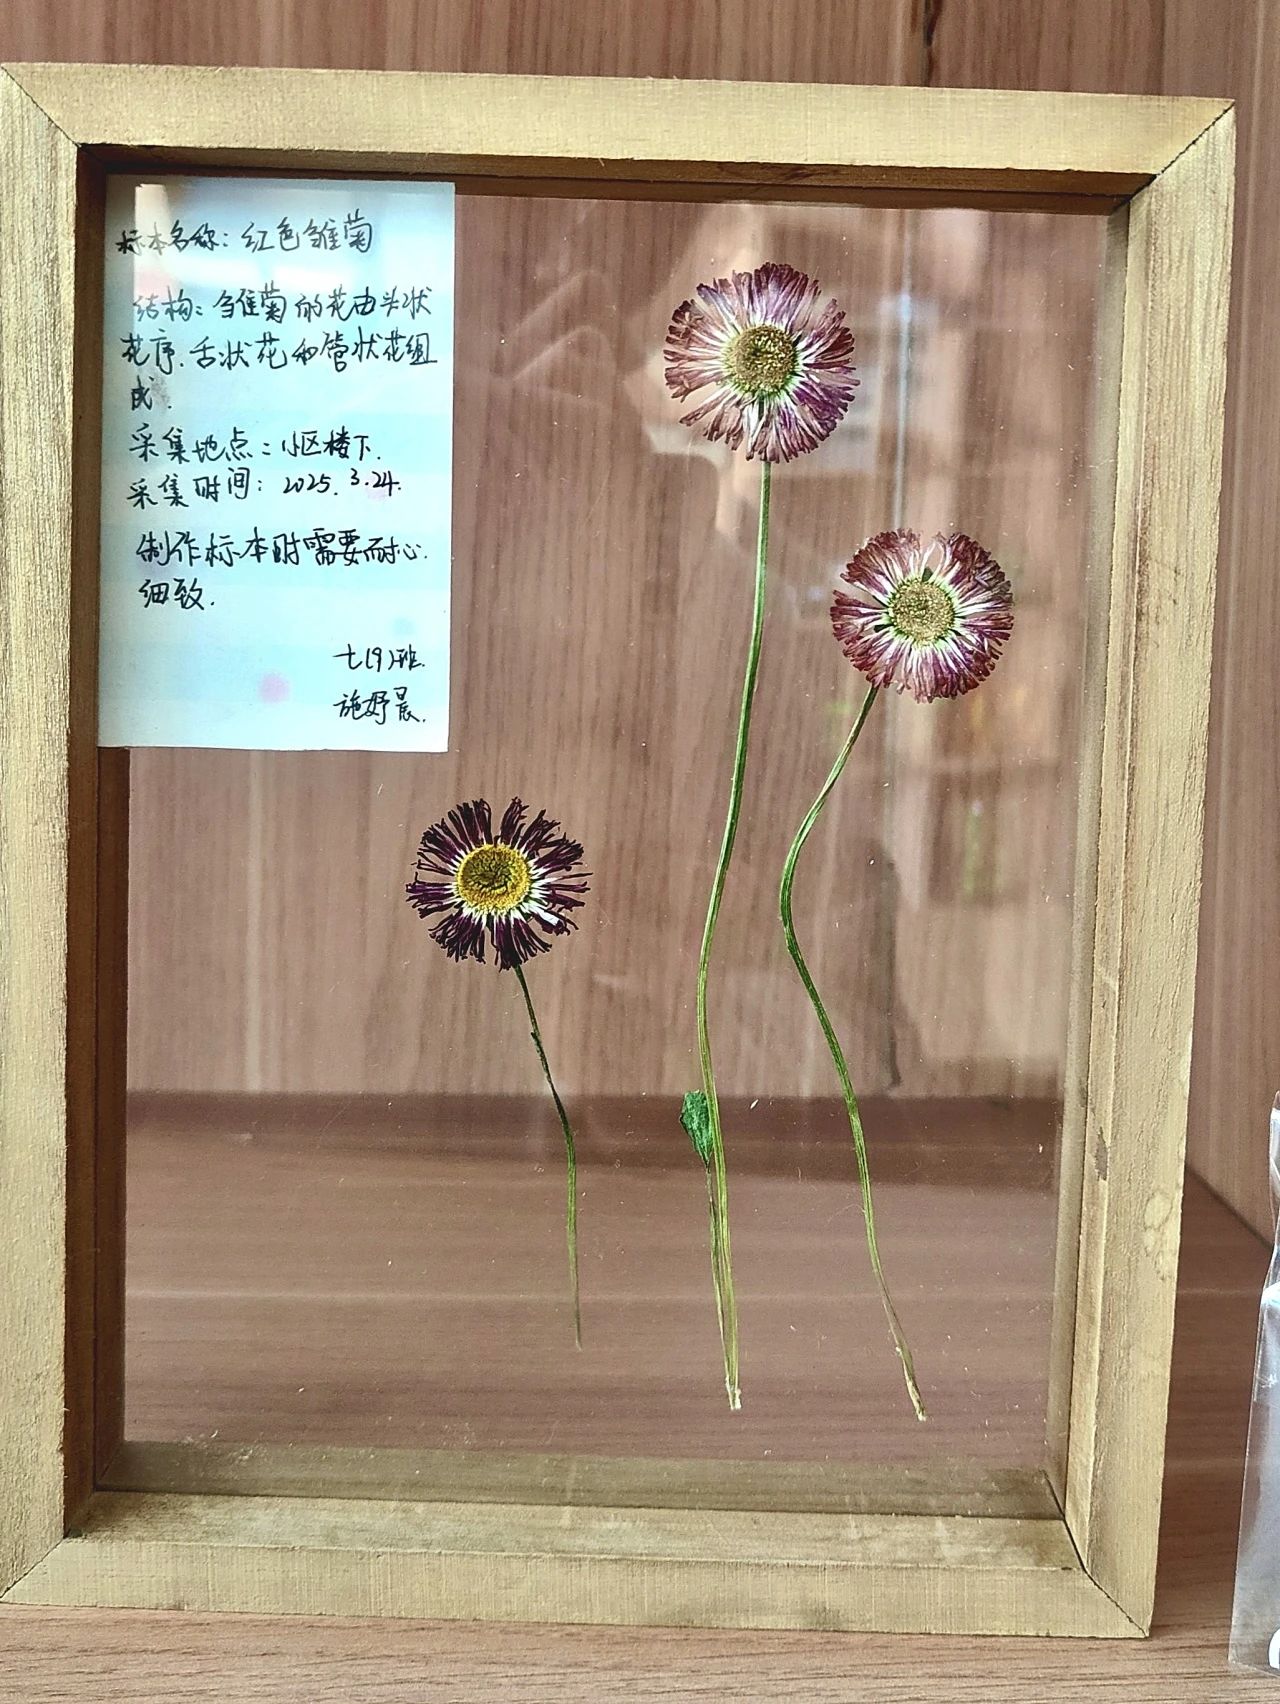 标本名称：红色雏菊
结构：雏菊的花由头状
花序.舌状花和管状花组
成.
采集地点：小区楼下.
采集时间：2025.3.24.
制作标本时需要耐心.
细致.
七(9)班.
施妤晨.